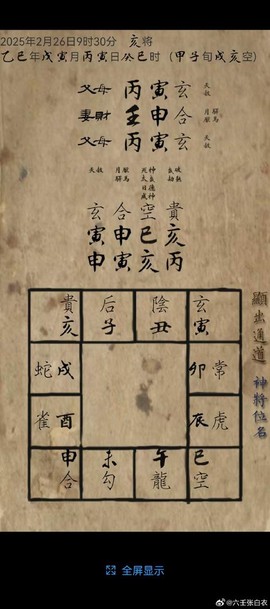 2025年2月26日9时30分 亥将
乙巳年戊寅月丙寅日癸巳时（甲子旬戌亥空）
父母 丙寅玄
妻财 壬申合
父母 丙寅玄
玄合空貴
寅申巳亥
申寅亥丙
貴 后 陰 玄
亥 子 丑 寅
蛇戌 卯常
雀酉 辰虎
申 未 午 巳
合 勾 龍 空
顯出通道 神將位名
全屏显示
@六壬张白衣